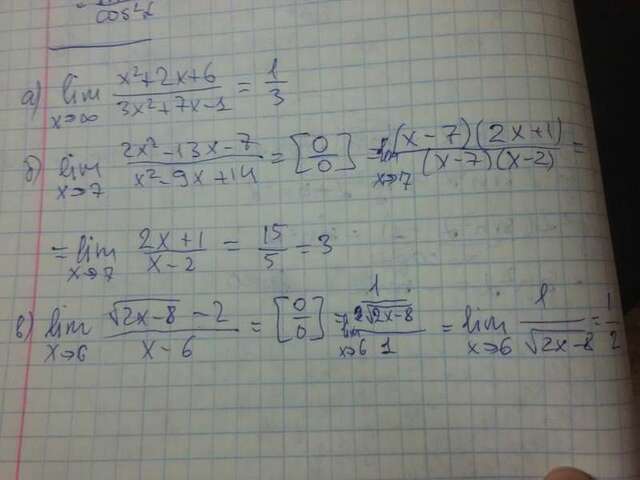 cos²α
а) lim x→∞ (x²+2x+6)/(3x²+7x-1) = 1/3
б) lim x→7 (2x²-13x-7)/(x²-9x+14) = [0/0] = lim x→7 ((x-7)(2x+1))/((x-7)(x-2)) =
= lim x→7 (2x+1)/(x-2) = 15/5 = 3
в) lim x→6 (√(2x-8) - 2)/(x-6) = [0/0] = lim x→6 = lim x→6 1/√(2x-8) = 1/2